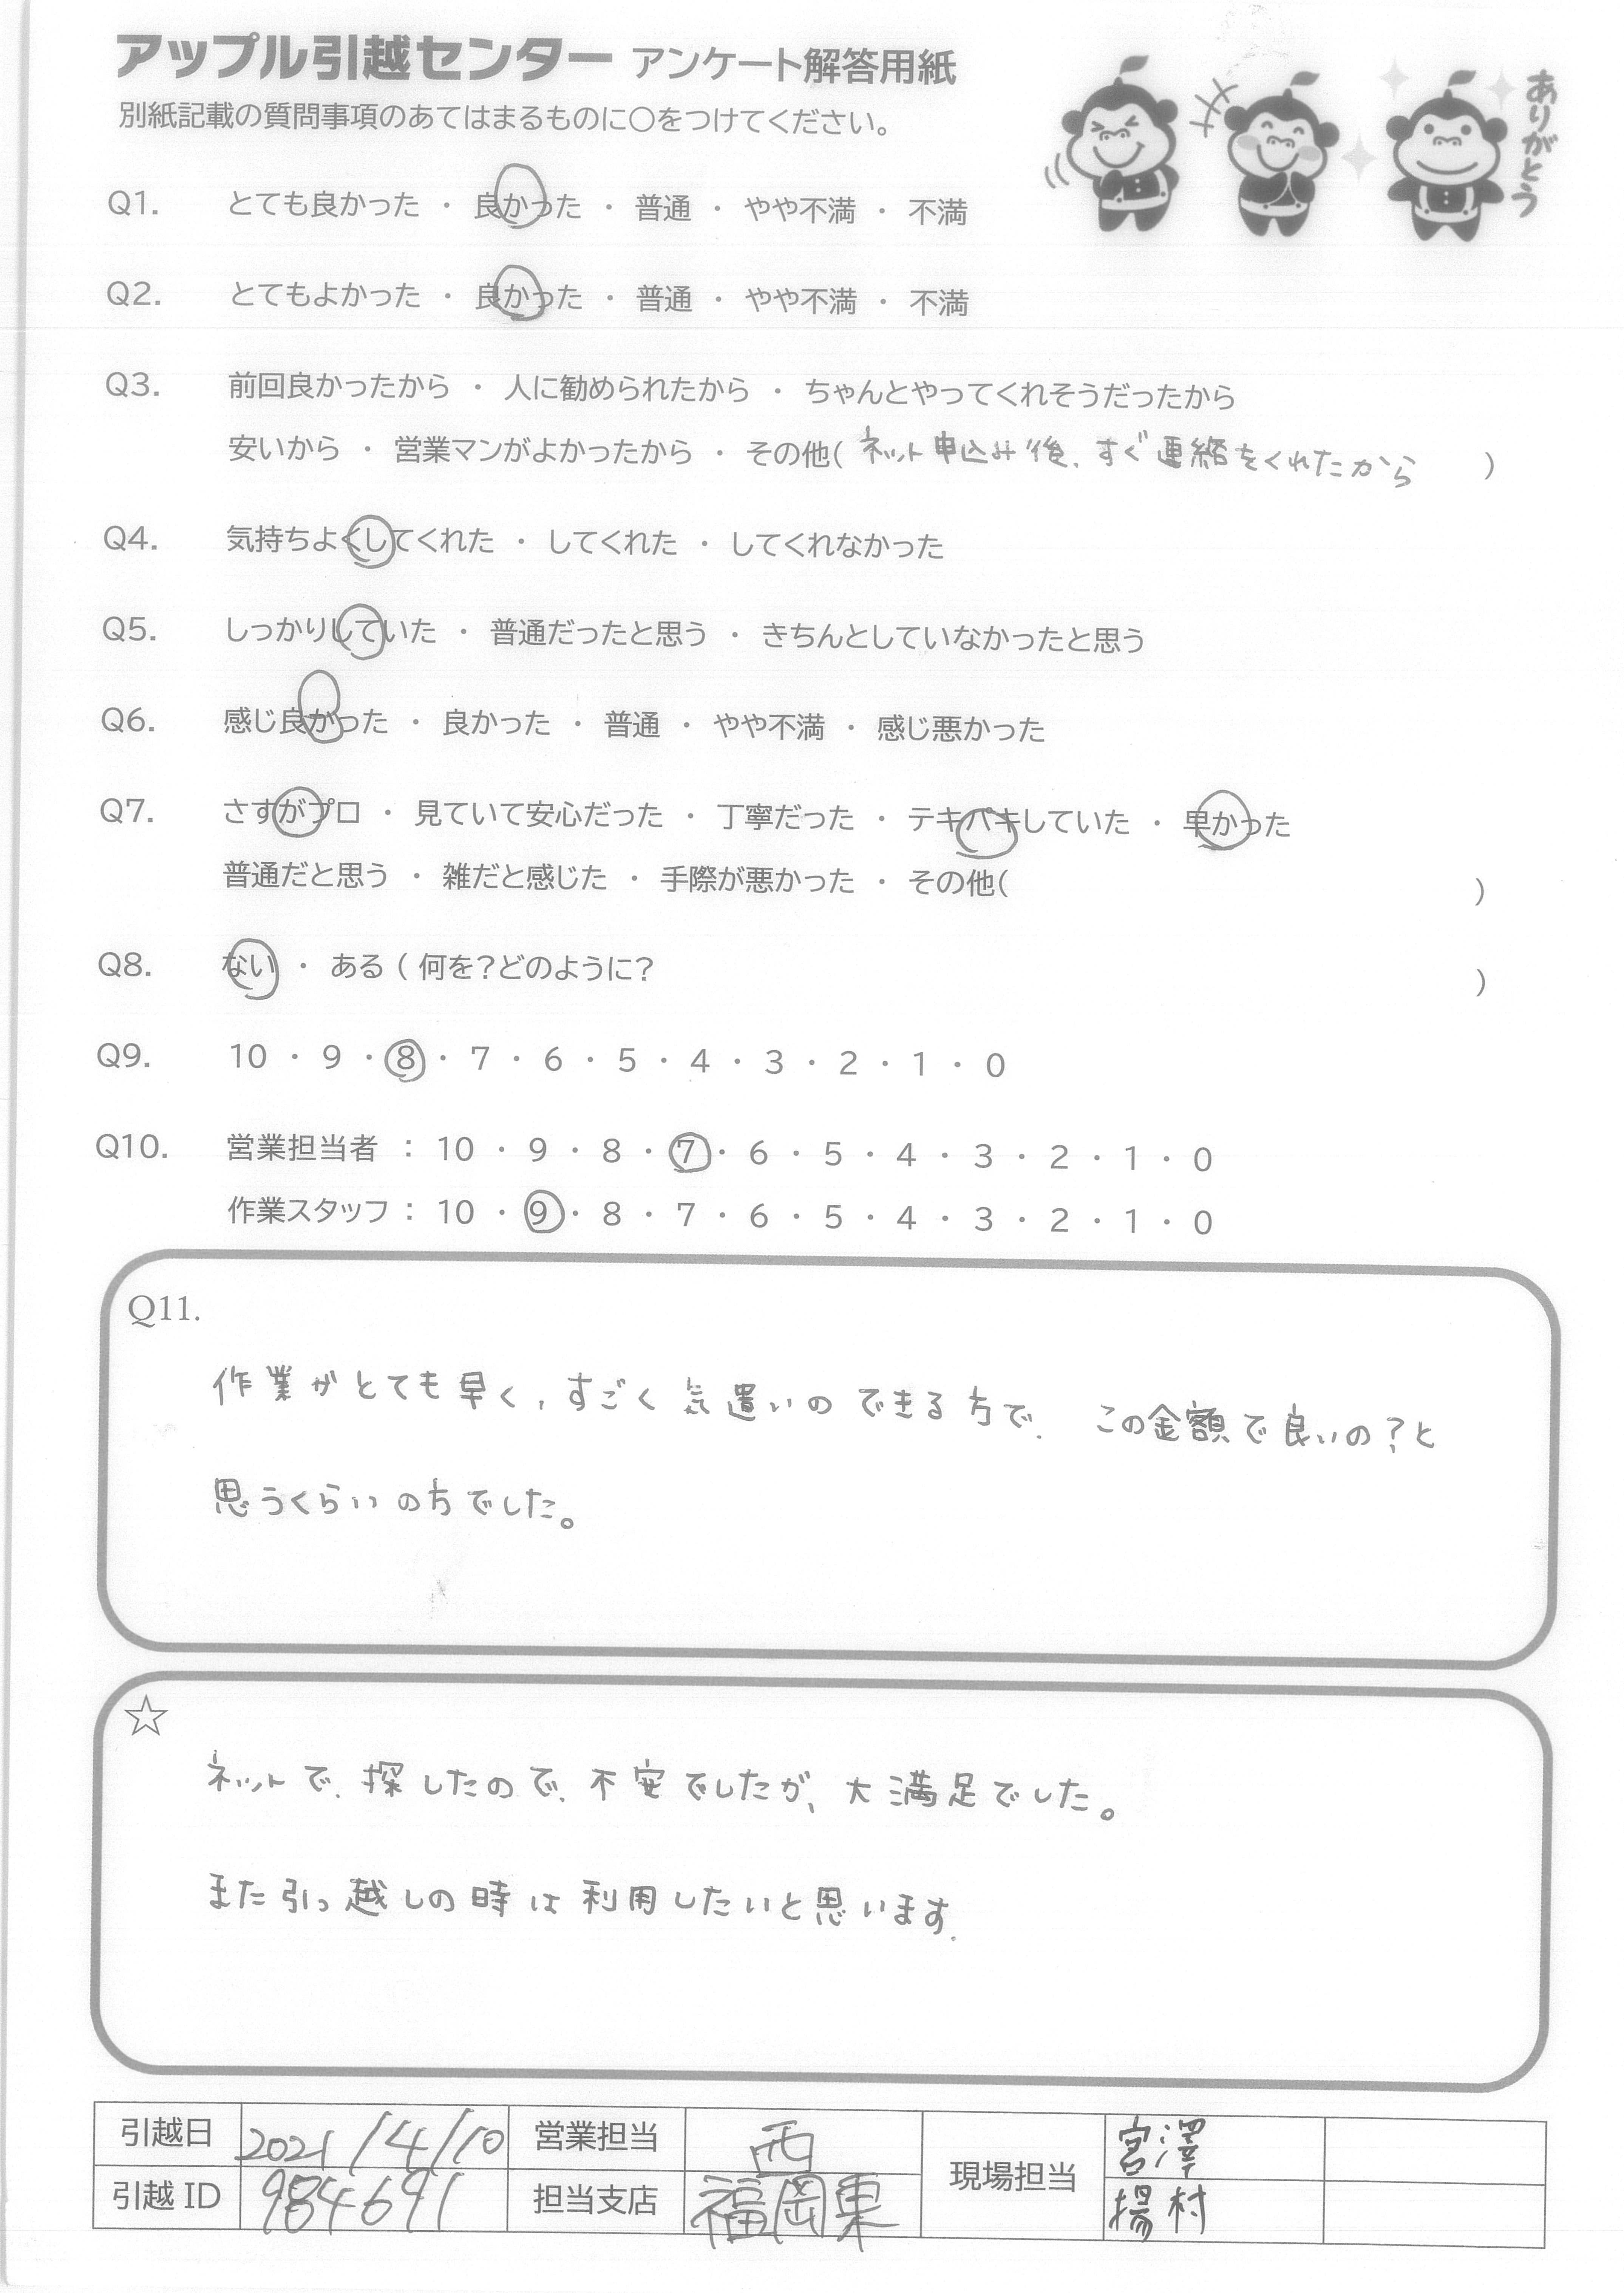 アップル引越センター アンケート解答用紙
別紙記載の質問事項のあてはまるものに○をつけてください。
ありがとう
Q1. とても良かった ・ 良かった ・ 普通 ・ やや不満 ・ 不満
Q2. とてもよかった ・ 良かった ・ 普通 ・ やや不満 ・ 不満
Q3. 前回良かったから ・ 人に勧められたから ・ ちゃんとやってくれそうだったから
安いから ・ 営業マンがよかったから ・ その他( ネット申込み後、すぐ連絡をくれたから )
Q4. 気持ちよくしてくれた ・ してくれた ・ してくれなかった
Q5. しっかりしていた ・ 普通だったと思う ・ きちんとしていなかったと思う
Q6. 感じ良かった ・ 良かった ・ 普通 ・ やや不満 ・ 感じ悪かった
Q7. さすがプロ ・ 見ていて安心だった ・ 丁寧だった ・ テキパキしていた ・ 早かった
普通だと思う ・ 雑だと感じた ・ 手際が悪かった ・ その他( )
Q8. ない ・ ある ( 何を?どのように? )
Q9. 10 ・ 9 ・ 8 ・ 7 ・ 6 ・ 5 ・ 4 ・ 3 ・ 2 ・ 1 ・ 0
Q10. 営業担当者 : 10 ・ 9 ・ 8 ・ 7 ・ 6 ・ 5 ・ 4 ・ 3 ・ 2 ・ 1 ・ 0
作業スタッフ : 10 ・ 9 ・ 8 ・ 7 ・ 6 ・ 5 ・ 4 ・ 3 ・ 2 ・ 1 ・ 0
Q11.
作業がとても早く、すごく気遣いのできる方で、この金額で良いの?と
思うくらいの方でした。
☆
ネットで、探したので、不安でしたが、大満足でした。
また引っ越しの時は利用したいと思います。
引越日 2021/4/10 営業担当 西 現場担当 宮澤
引越 ID 984691 担当支店 福岡東 揚村